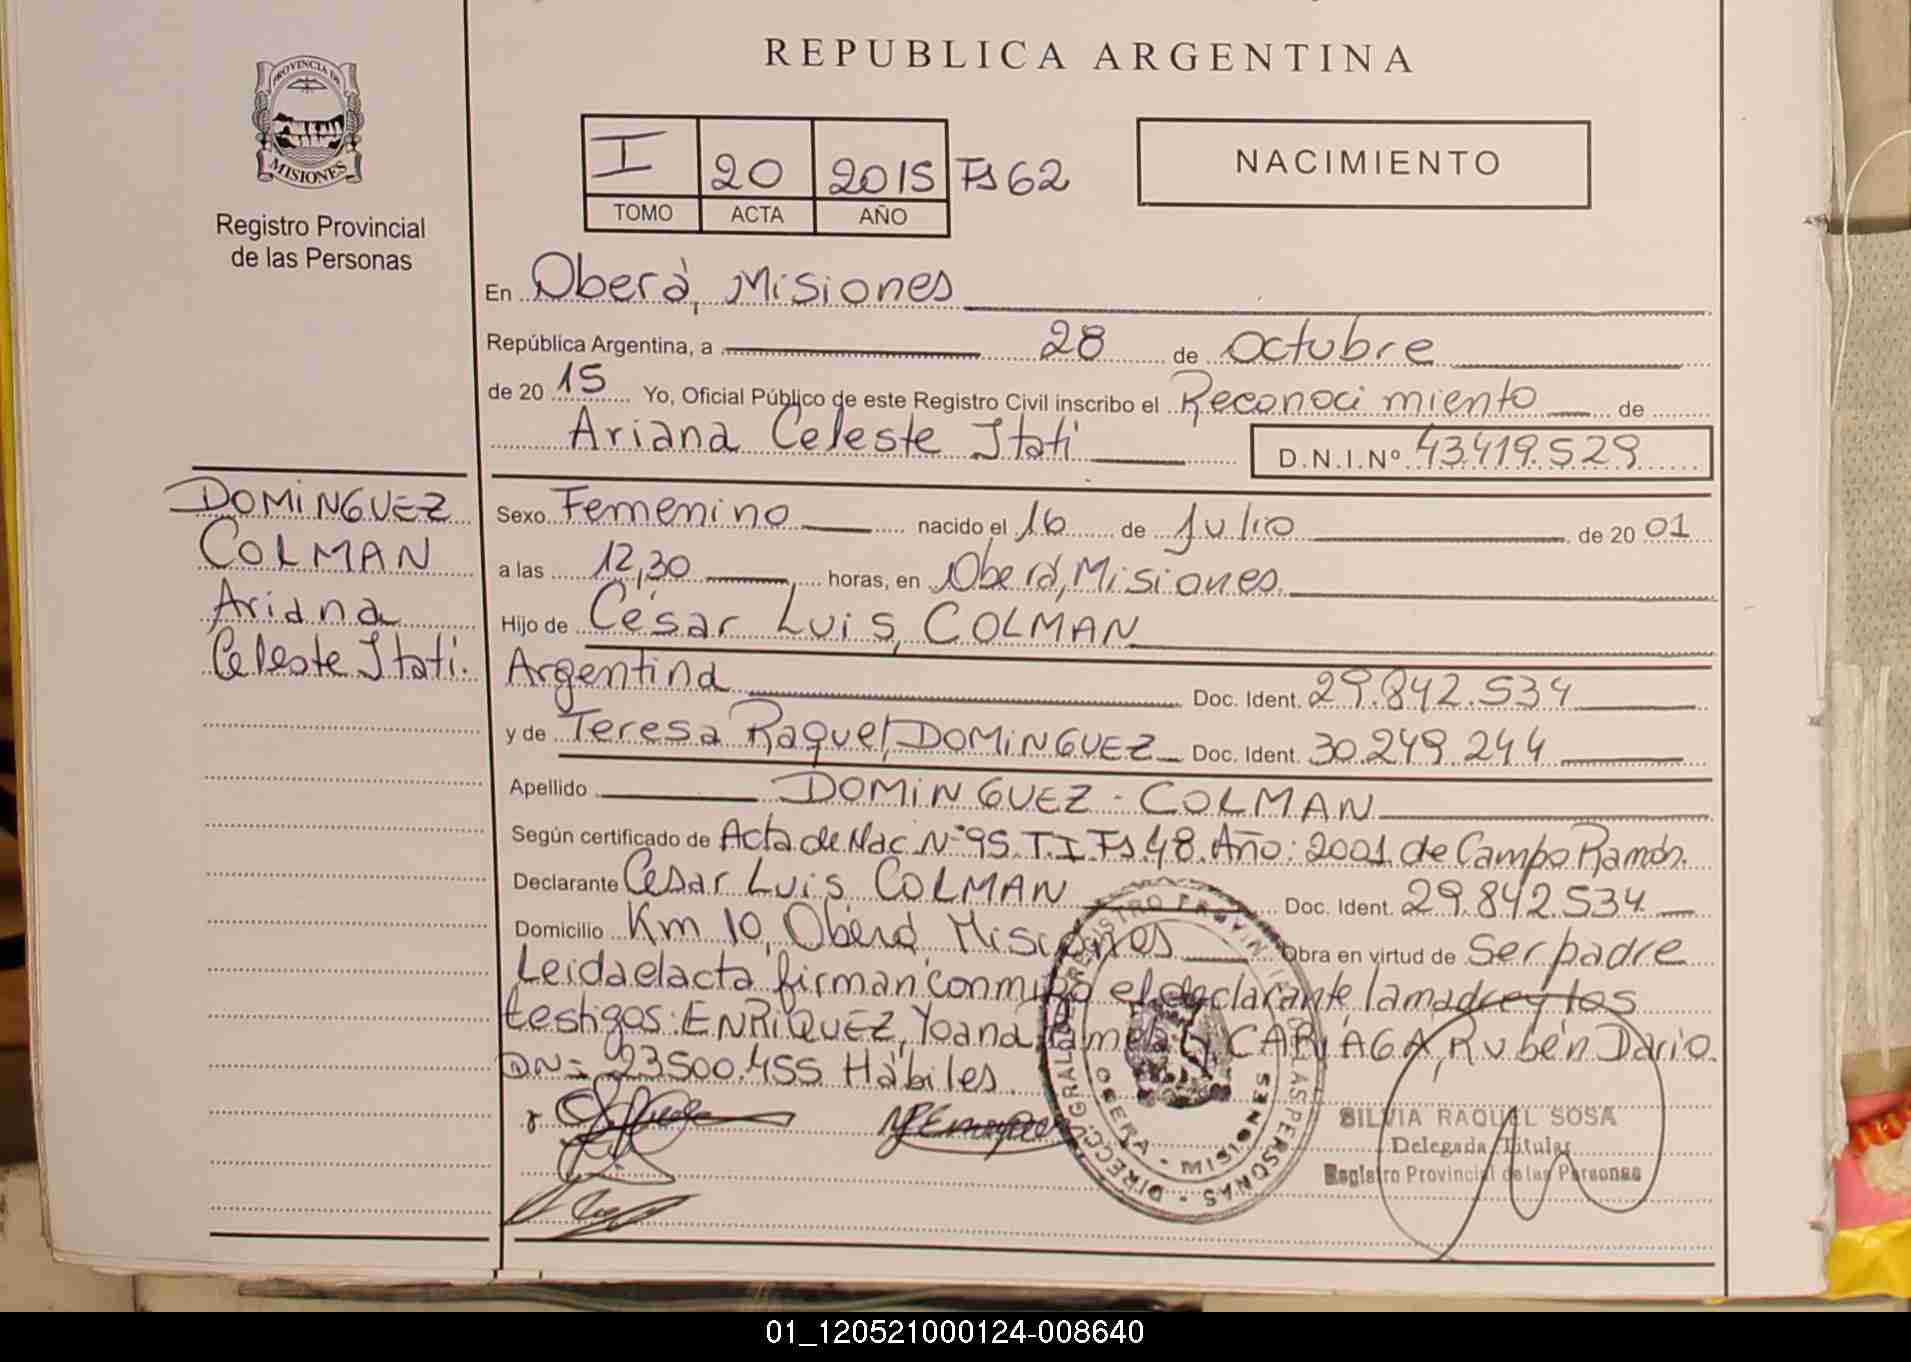 REPUBLICA ARGENTINA
PROVINCIA DE
MISIONES
Registro Provincial
de las Personas
I 20 2015 Fs 62
TOMO ACTA AÑO
NACIMIENTO
En Oberá, Misiones
República Argentina, a 28 de Octubre
de 2015 Yo, Oficial Público de este Registro Civil inscribo el Reconocimiento de
Ariana Celeste Itati D.N.I.Nº 43.419.529
DOMINGUEZ
COLMAN
Ariana
Celeste Itati.
Sexo Femenino nacido el 16 de Julio de 2001
a las 12,30 horas, en Oberá, Misiones.
Hijo de César Luis, COLMAN
Argentina Doc. Ident. 29.842.534
y de Teresa Raquel, DOMINGUEZ Doc. Ident. 30.249.244
Apellido DOMINGUEZ - COLMAN
Según certificado de Acta de Nac. Nº 95. T.I Fs 48. Año: 2001 de Campo Ramón.
Declarante César Luis, COLMAN Doc. Ident. 29.842.534
Domicilio Km 10, Oberá Misiones Obra en virtud de Ser padre
Leida el acta firman conmigo el declarante, la madre y los
testigos: ENRIQUEZ, Yoana Pamela y CARIAGA, Rubén Dario.
DN= 23500.455 Hábiles.
DIRECC. GRAL DE REGISTRO PROVINCIAL DE LAS PERSONAS
OBERA - MISIONES
SILVIA RAQUEL SOSA
Delegada Titular
Registro Provincial de las Personas
01_120521000124-008640